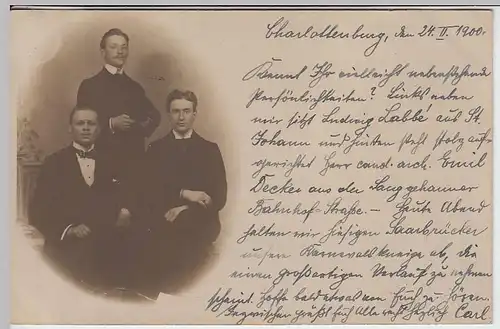 Charlottenburg, den 24. II. 1900.
Kennt Ihr vielleicht nebenstehende
Persönlichkeiten? Links neben
mir sitzt Ludwig Labbé aus St.
Johann und hinten steht stolz auf-
gerichtet Herr cand. arch. Emil
Decker aus der
Bahnhof-Straße. — Heute Abend
halten wir hiesigen Saarbrücker
unsere Karnevalskneipe ab, die
einen großartigen Verlauf zu nehmen
scheint. Hoffe bald etwas von Euch zu hören.
Inzwischen grüßt Euch Alle recht herzlich Carl